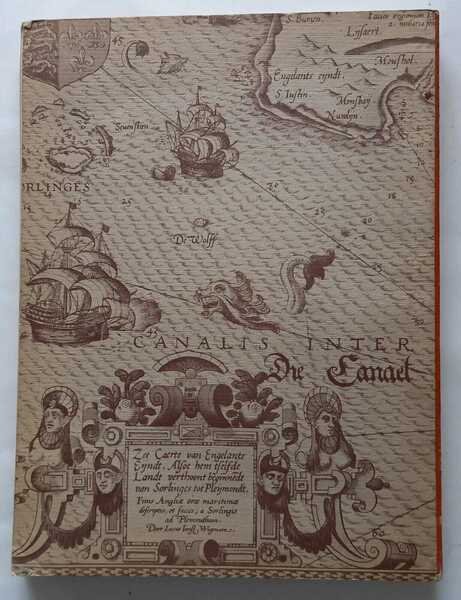 45
S. Buryen.
Lissaert.
Moushol.
Engelants eyndt.
S. Iustin.
Monsbay
Numlyn
Sevensten
ORLINGES
De Wolff
45
CANALIS INTER
Die Canael
Zee Caerte van Engelants
Eyndt, Alsoe hem tselfde
Lande verthoent beginnēde
van Sorlinges tot Pleymondt.
Finis Angliæ oræ maritimæ
descriptio, et facies, a Sorlingis
ad Plemondtum.
Door Lucas Ianss. Wagenaer.
60